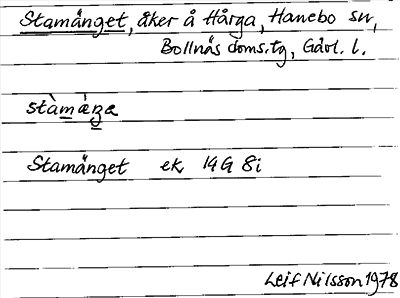 Stamånget, åker å Hårga, Hanebo sn,
Bollnäs doms.tg, Gävl. l.
stàmàŋa
Stamånget ek 14G 8i
Leif Nilsson 1978